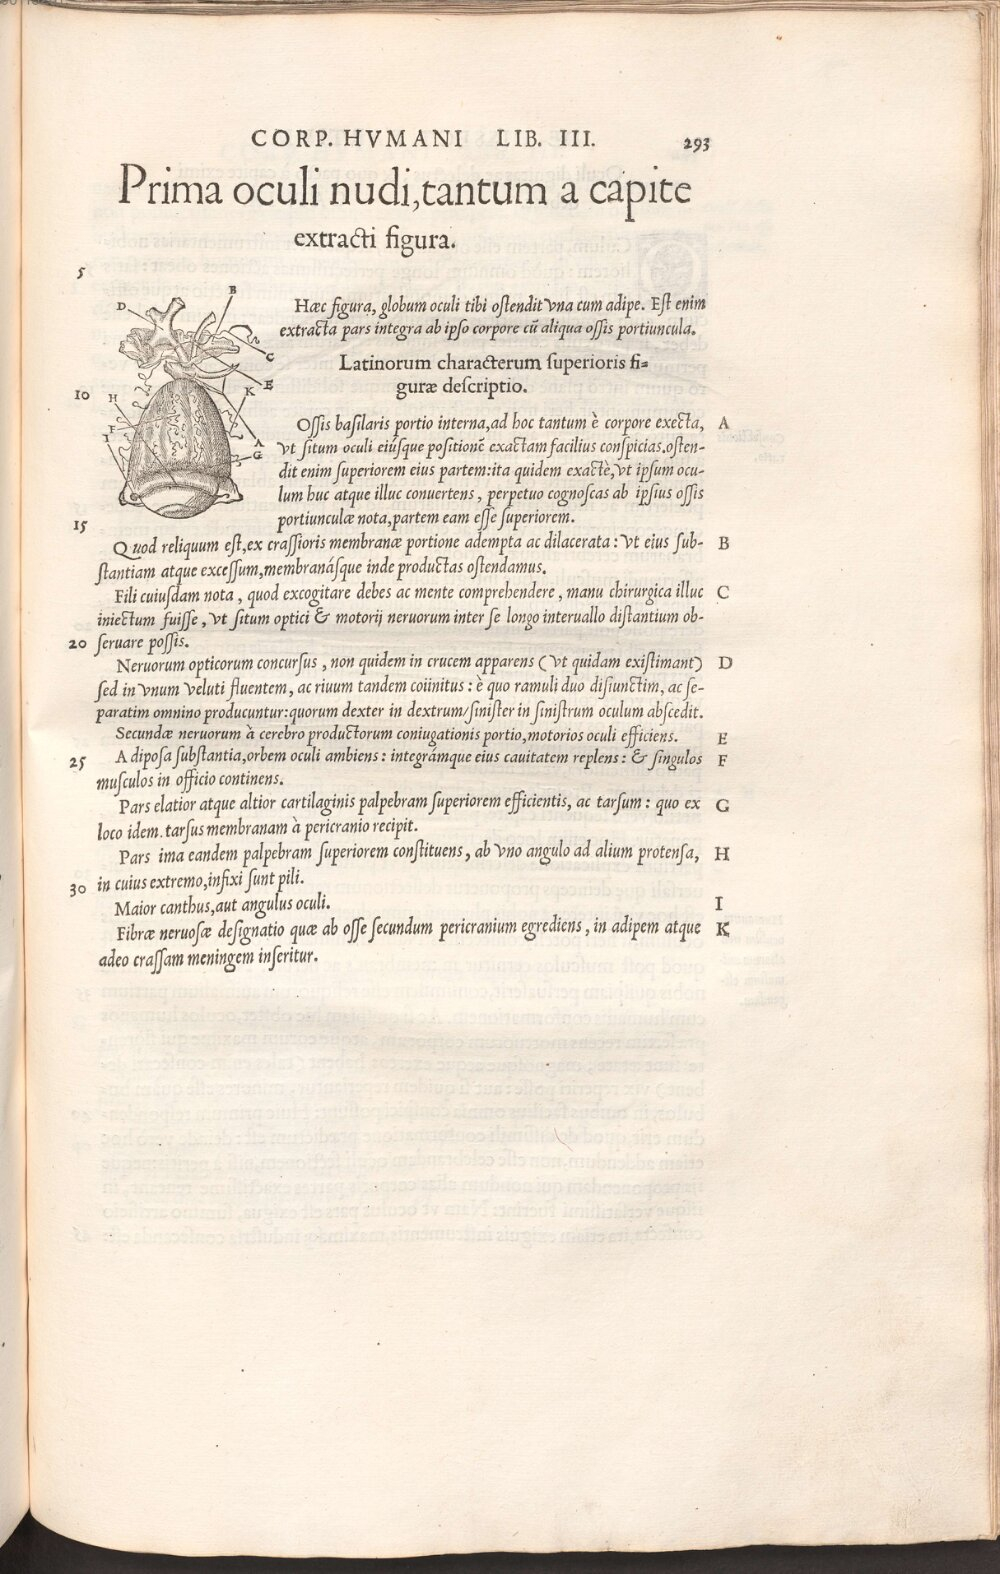 CORP. HVMANI LIB. III. 293
Prima oculi nudi, tantum a capite
extracti figura.
5
D
B
C
E
K
H
F
I
A
G
Hæc figura, globum oculi tibi oſtendit vna cum adipe. Eſt enim
extracta pars integra ab ipſo corpore cū aliqua oſsis portiuncula.
Latinorum characterum ſuperioris fi=
10 guræ deſcriptio.
Oſsis baſilaris portio interna, ad hoc tantum è corpore execta, A
vt ſitum oculi eiúſque poſitionē exactam facilius conſpicias, oſten-
dit enim ſuperiorem eius partem: ita quidem exactè, vt ipſum ocu-
lum huc atque illuc conuertens, perpetuo cognoſcas ab ipſius oſsis
15 portiunculæ nota, partem eam eſſe ſuperiorem.
Quod reliquum eſt, ex craſsioris membranæ portione adempta ac dilacerata: vt eius ſub- B
ſtantiam atque exceſſum, membranáſque inde productas oſtendamus.
Fili cuiuſdam nota, quod excogitare debes ac mente comprehendere, manu chirurgica illuc C
iniectum fuiſſe, vt ſitum optici & motorij neruorum inter ſe longo interuallo diſtantium ob-
20 ſeruare poſsis.
Neruorum opticorum concurſus, non quidem in crucem apparens (vt quidam exiſtimant) D
ſed in vnum veluti fluentem, ac riuum tandem coiinitus: è quo ramuli duo diſiunctim, ac ſe-
paratim omnino producuntur: quorum dexter in dextrum/ſiniſter in ſiniſtrum oculum abſcedit.
Secundæ neruorum à cerebro productorum coniugationis portio, motorios oculi efficiens. E
25 Adipoſa ſubſtantia, orbem oculi ambiens: integrámque eius cauitatem replens: & ſingulos F
muſculos in officio continens.
Pars elatior atque altior cartilaginis palpebram ſuperiorem efficientis, ac tarſum: quo ex G
loco idem. tarſus membranam à pericranio recipit.
Pars ima eandem palpebram ſuperiorem conſtituens, ab vno angulo ad alium protenſa, H
30 in cuius extremo, infixi ſunt pili.
Maior canthus, aut angulus oculi. I
Fibræ neruoſæ deſignatio quæ ab oſſe ſecundum pericranium egrediens, in adipem atque K
adeo craſſam meningem inſeritur.